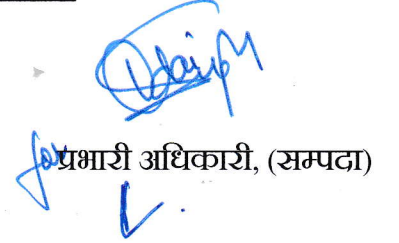 for प्रभारी अधिकारी, (सम्पदा)